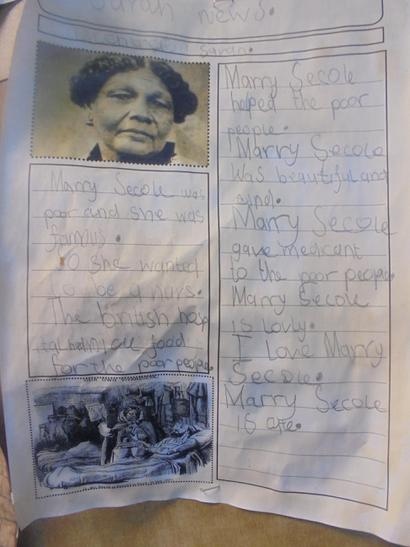 Sarah news.
Sarah.
Marry Secole was
poor and she was
famus.
so she wanted
to be a nurs.
The british hosp
for the poor people.
Marry Secole
helped the poor
people.
Marry Secole
was beautiful and
cind.
Marry Secole
gave medicent
to the poor people
Marry Secole
is lovly.
I love Marry
Secole.
Marry Secole
is